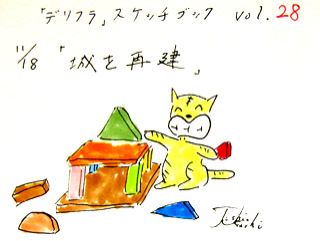 「デリフラ」スケッチブック vol.28
11/18 「城を再建」